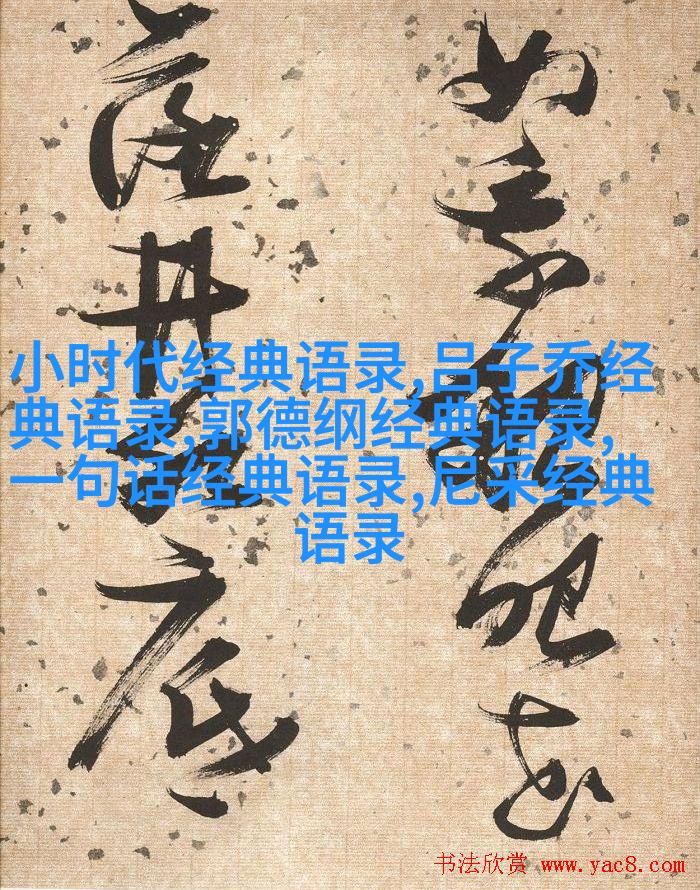 如乘船眼花
落井水底
小时代经典语录,吕子乔经
典语录,郭德纲经典语录,
一句话经典语录,尼采经典
语录
书法欣赏 www.yac8.com